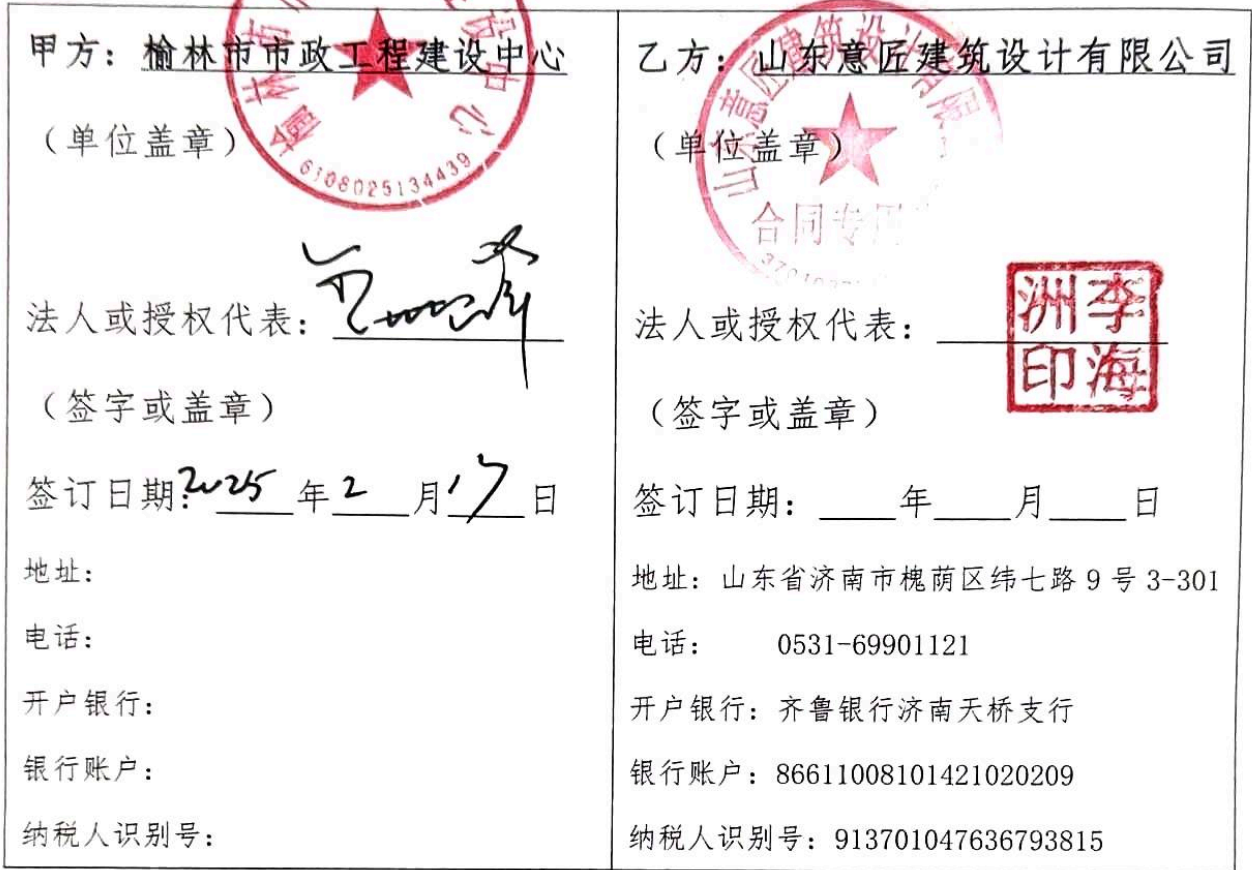 甲方：榆林市市政工程建设中心
（单位盖章）
6108025134439
法人或授权代表：
（签字或盖章）
签订日期：2025年2月17日
地址：
电话：
开户银行：
银行账户：
纳税人识别号：
乙方：山东意匠建筑设计有限公司
（单位盖章）
山东意匠建筑设计有限
合同专用
法人或授权代表：
李海洲印
（签字或盖章）
签订日期：____年____月____日
地址：山东省济南市槐荫区纬七路9号3-301
电话： 0531-69901121
开户银行：齐鲁银行济南天桥支行
银行账户：86611008101421020209
纳税人识别号：913701047636793815